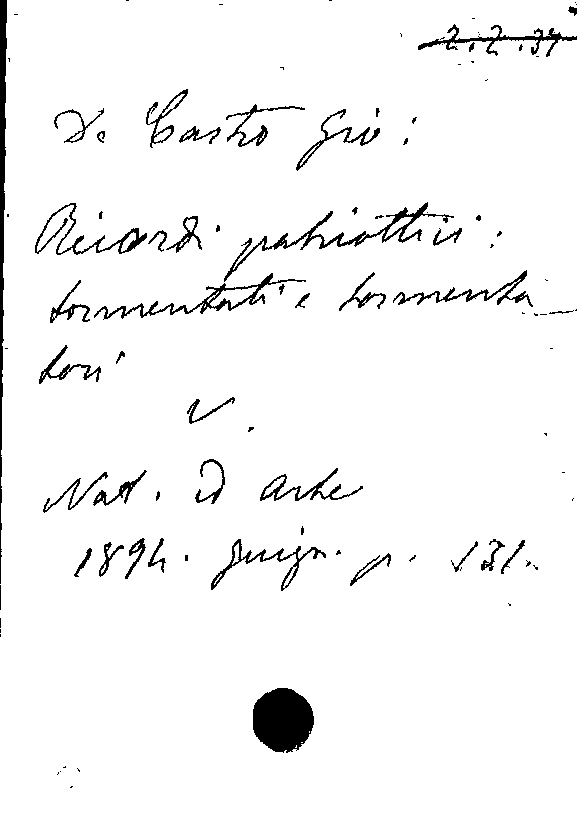 2.2.34
De Castro Gio:
Ricordi patriottici:
tormentati e tormenta
tori
V.
Nat. ed Arte
1894. Giugn. p. 131.